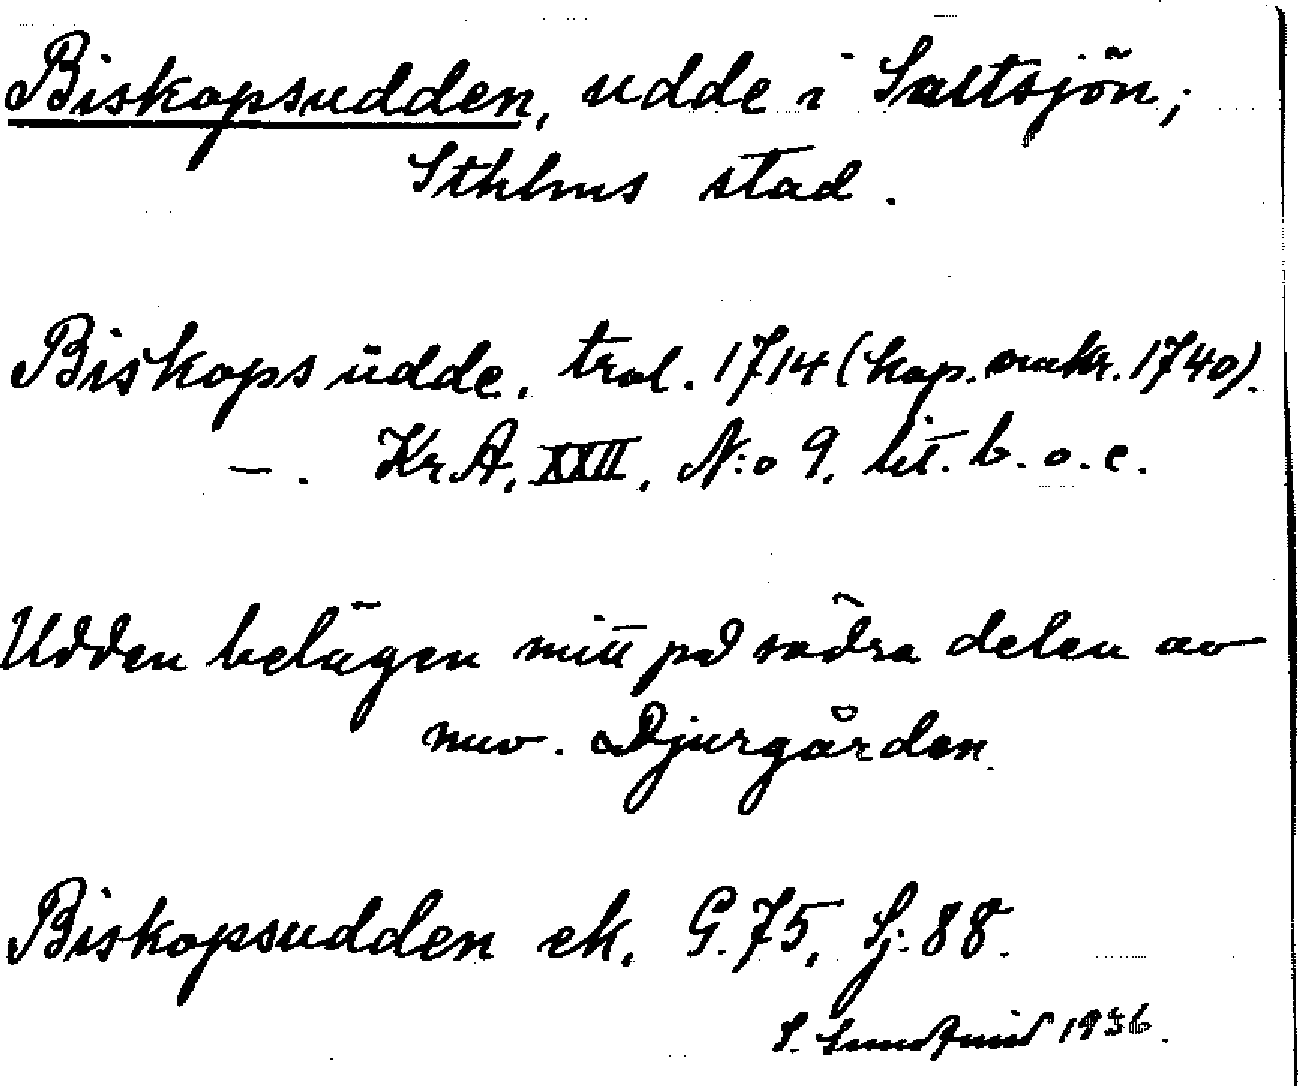 Biskopsudden, udde i Saltsjön;
Sthlms stad.
Biskops udde. trol. 1714 (kop. omkr. 1740).
—. Kr.A. XXII, N:o 9. lit. b. o. c.
Udden belägen mitt på södra delen av
nuv. Djurgården.
Biskopsudden ek. G.75, Sj: 88.
S. 1936.